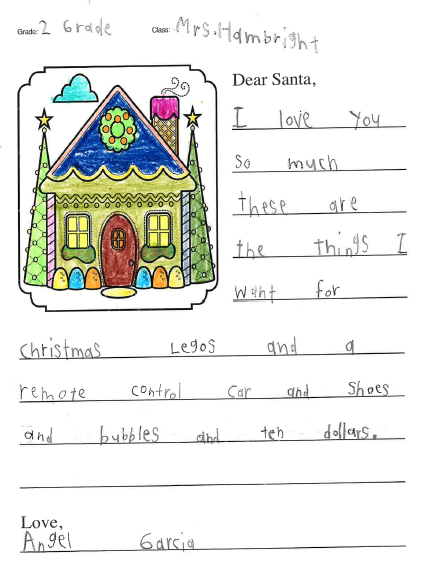 Grade: 2 Grade Class: Mrs. Hambright
Dear Santa,
I love you
so much
these are
the things I
want for
christmas Legos and a
remote control car and shoes
and bubbles and ten dollars.
Love,
Angel Garcia